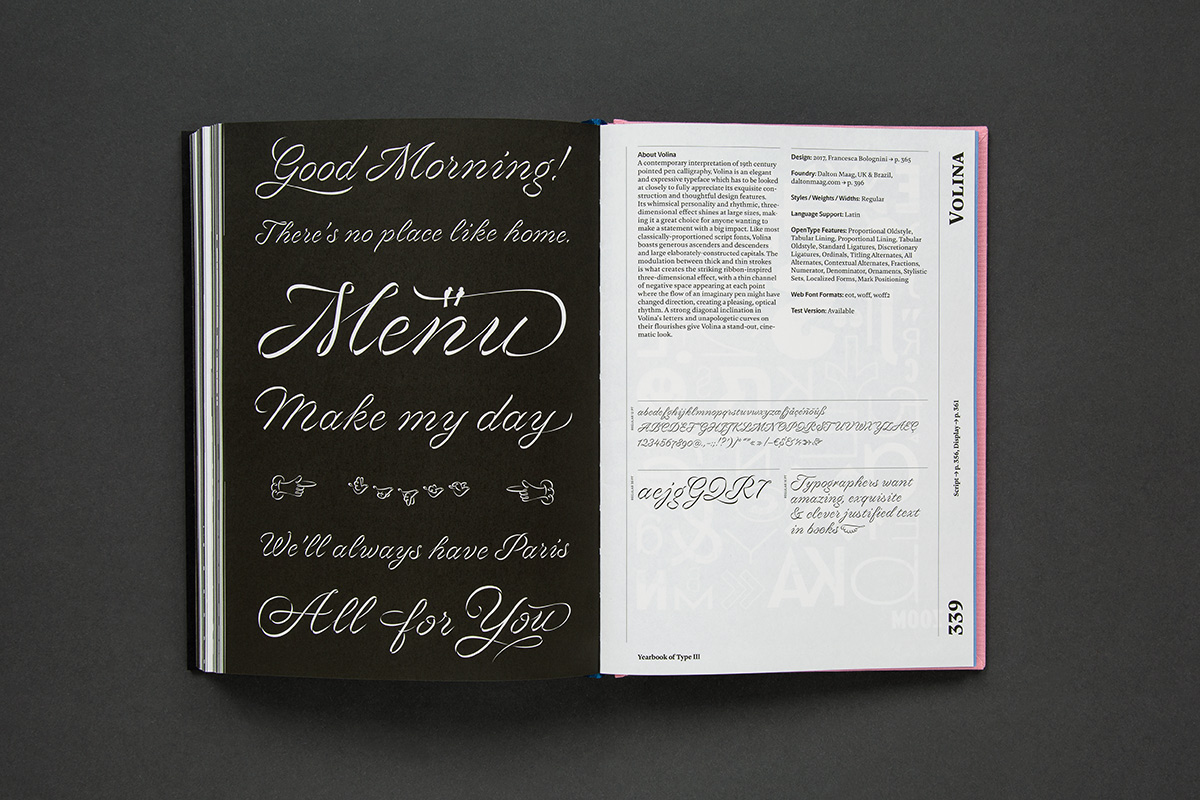 Good Morning!
There's no place like home.
Menu
Make my day
We'll always have Paris
All for You
About Volina
A contemporary interpretation of 19th century
pointed pen calligraphy, Volina is an elegant
and expressive typeface which has to be looked
at closely to fully appreciate its exquisite con-
struction and thoughtful design features.
Its whimsical personality and rhythmic, three-
dimensional effect shines at large sizes, mak-
ing it a great choice for anyone wanting to
make a statement with a big impact. Like most
classically-proportioned script fonts, Volina
boasts generous ascenders and descenders
and large elaborately-constructed capitals. The
modulation between thick and thin strokes
is what creates the striking ribbon-inspired
three-dimensional effect, with a thin channel
of negative space appearing at each point
where the flow of an imaginary pen might have
changed direction, creating a pleasing, optical
rhythm. A strong diagonal inclination in
Volina's letters and unapologetic curves on
their flourishes give Volina a stand-out, cine-
matic look.
Design: 2017, Francesca Bolognini → p. 365
Foundry: Dalton Maag, UK & Brazil,
daltonmaag.com → p. 396
Styles / Weights / Widths: Regular
Language Support: Latin
OpenType Features: Proportional Oldstyle,
Tabular Lining, Proportional Lining, Tabular
Oldstyle, Standard Ligatures, Discretionary
Ligatures, Ordinals, Titling Alternates, All
Alternates, Contextual Alternates, Fractions,
Numerator, Denominator, Ornaments, Stylistic
Sets, Localized Forms, Mark Positioning
Web Font Formats: eot, woff, woff2
Test Version: Available
VOLINA
abcdefghijklmnopqrstuvwxyzæfjåçéñöúß
ABCDEFGHIJKLMNOPQRSTUVWXYZÅEÇ
1234567890@.,-:;!?')/*
aejgGQR7
Typographers want
amazing, exquisite
& clever justified text
in books
Script → p. 356, Display → p. 361
339
Yearbook of Type III